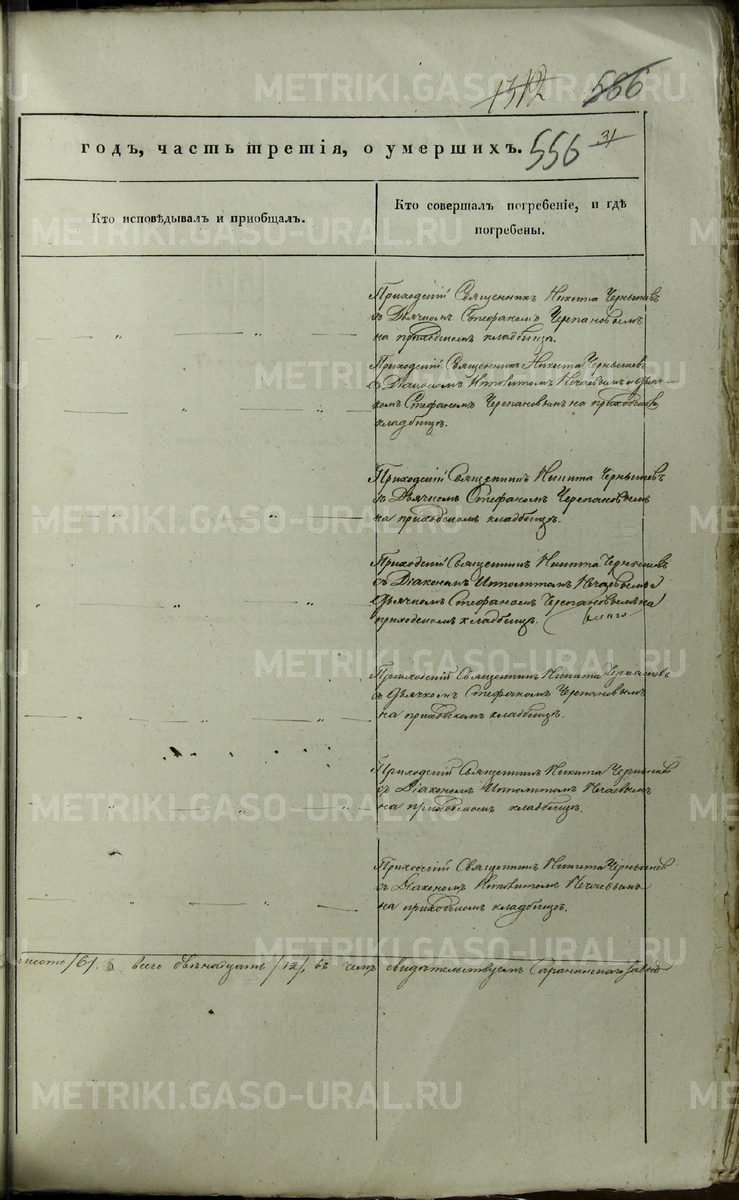 1312 566
годъ, часть третія, о умершихъ. 556 31
Кто исповѣдывалъ и приобщалъ.
Кто совершалъ погребеніе, и гдѣ
погребены.
Приходскій Священникъ Никита Чернышевъ
съ Дьячкомъ Стефаномъ Черепановымъ
на приходскомъ кладбищѣ.
Приходскій Священникъ Никита Чернышевъ
съ Діакономъ Ипполитомъ Нечаевымъ и дьяч-
комъ Стефаномъ Черепановымъ на приходскомъ
кладбищѣ.
Приходскій Священникъ Никита Чернышевъ
съ Дьячкомъ Стефаномъ Черепановымъ
на приходскомъ кладбищѣ.
Приходскій Священникъ Никита Чернышевъ
съ Діакономъ Ипполитомъ Нечаевымъ и
Дьячкомъ Стефаномъ Черепановымъ на
приходскомъ кладбищѣ.
Приходскій Священникъ Никита Чернышевъ
съ Дьячкомъ Стефаномъ Черепановымъ
на приходскомъ кладбищѣ.
Приходскій Священникъ Никита Чернышевъ
съ Діакономъ Ипполитомъ Нечаевымъ
на приходскомъ кладбищѣ.
Приходскій Священникъ Никита Чернышевъ
съ Діакономъ Ипполитомъ Нечаевымъ
на приходскомъ кладбищѣ.
шесть /6/. всего двѣнадцать /12/, въ чемъ свидѣтельствуемъ Саранинскаго завода
METRIKI.GASO-URAL.RU